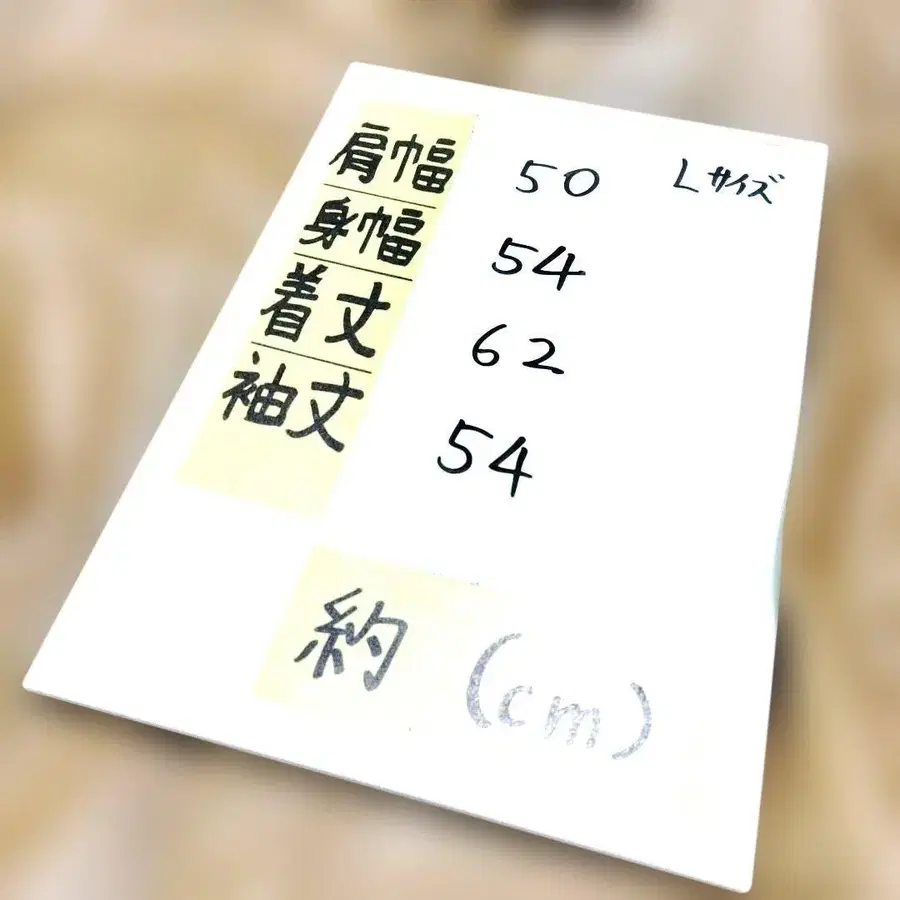 肩幅 50 Lサイズ
身幅 54
着丈 62
袖丈 54
約 (cm)